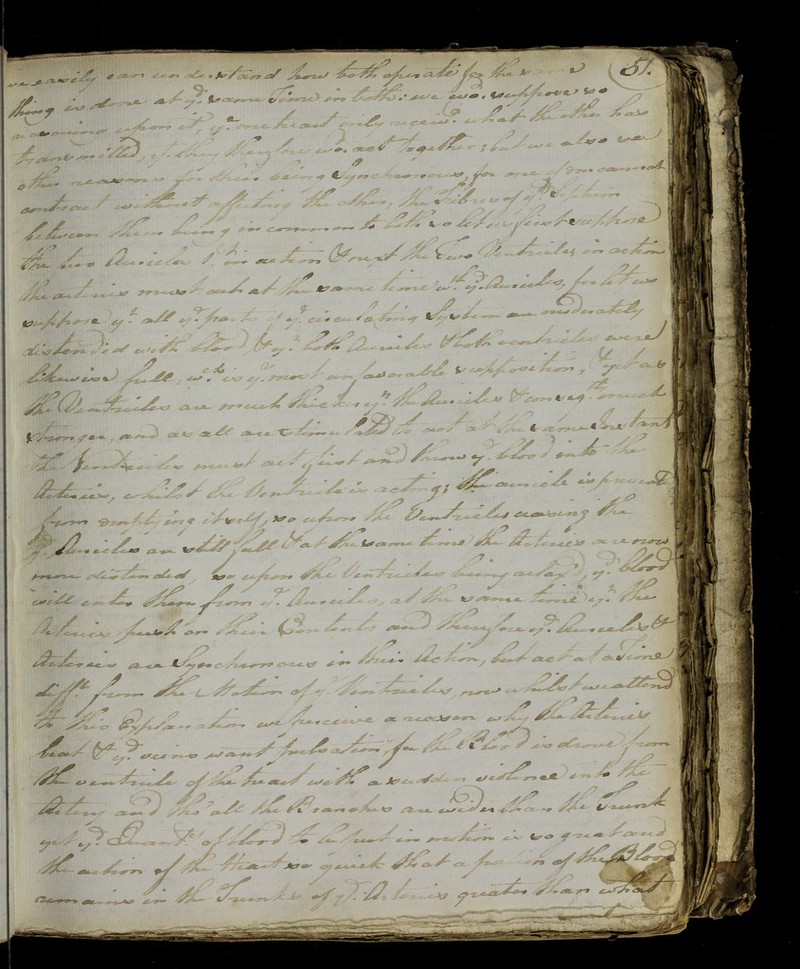 51.
we easily can understand how both operate for the same
thing is done at ye. same Time in both: we wd. suppose so
reasoning upon it, yt. one heart only receivd. what the other has
transmitted, yt. they therefore wd. act together; but we also see
other reasons for their being Synchronous, for one of em cannot
contract without affecting the other, the Fibres of ye. Septum
between them being in common to both so let us first suppose
the two Auricles 1st. in action & next the Two Ventricles in action
the arteries must act at the same time wth. ye. Auricles, for let us
suppose yt. all ye. parts of ye. circulating System are moderately
distended with blood, & yt. both Auricles & both ventricles were
likewise full, wch. is ye. most unfavorable supposition, & yet as
the Ventricles are much thicker yn. the Auricles & conseqtly. much
stronger, and as all are stimulated to act at the same Instant
the Ventricles must act first and throw ye. blood into the
Arteries, whilst the Ventricle is acting; the auricle is prevented
from emptying itself, so upon the Ventricles ceasing the
ye. Auricles are still full & at the same time the Arteries are now
more distended, so upon the Ventricles being relaxd., ye. blood
will enter them from ye. Auricles, at the same time yt. the
Arteries push on their Contents and therefore ye. Auricles &
Arteries are Synchronous in their Action, but act at a Time
difft. from the Motion of ye. Ventricles, now whilst we attend
to this Explanation we perceive a reason why the Arteries
beat & ye. veins want pulsation, for the Blood is drove from
the ventricle of the heart with a sudden violence into the
Artery and tho' all the Branches are wider than the Trunk
yet ye. Quanty. of blood to be put in motion is so great and
the action of the Heart so quick that a portion of the Blood
remains in the Trunks of ye. Arteries greater than what